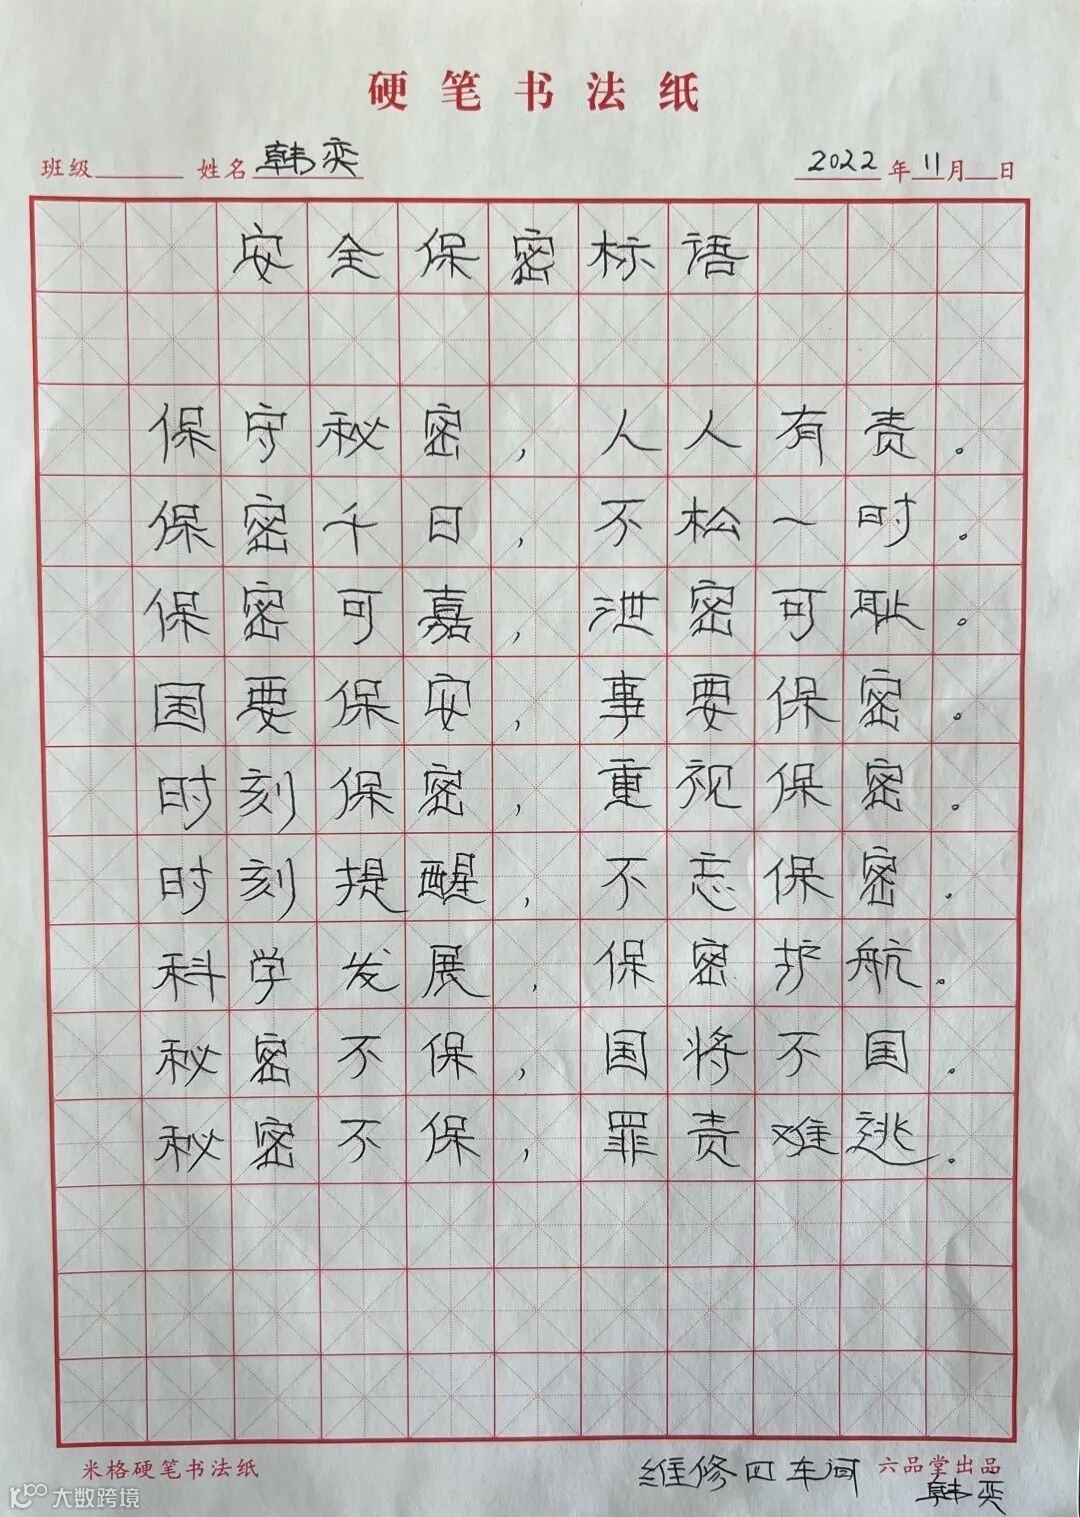 硬笔书法纸
班级 姓名 韩奕 2022年11月 日
安全保密标语
保守秘密，人人有责。
保密千日，不松一时。
保密可嘉，泄密可耻。
国要保安，事要保密。
时刻保密，重视保密。
时刻提醒，不忘保密。
科学发展，保密护航。
秘密不保，国将不国。
秘密不保，罪责难逃。
米格硬笔书法纸 维修四车间 六品堂出品
韩奕
大数跨境